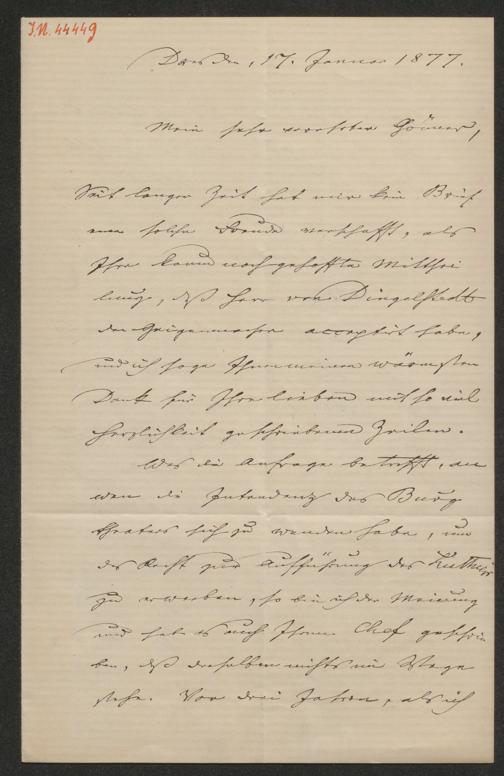 J.N. 44449
Dresden, 17. Januar 1877.
Mein sehr verehrter Gönner,
Seit langer Zeit hat mir kein Brief
eine solche Freude verschafft, als
Ihre kaum noch gehoffte Mitthei
lung, daß Herr von Dingelstedt
den Geigenmacher acceptirt habe,
und ich sage Ihnen meinen wärmsten
Dank für Ihre lieben mit so viel
Herzlichkeit geschriebenen Zeilen.
Was die Anfrage betrifft, an
wen die Intendenz des Burg
theaters sich zu wenden habe, um
das Recht zur Aufführung des
zu erwerben, so bin ich der Meinung
und habe es auch Ihrem Chef geschrie
ben, daß derselben nichts im Wege
stehe. Vor drei Jahren, als ich